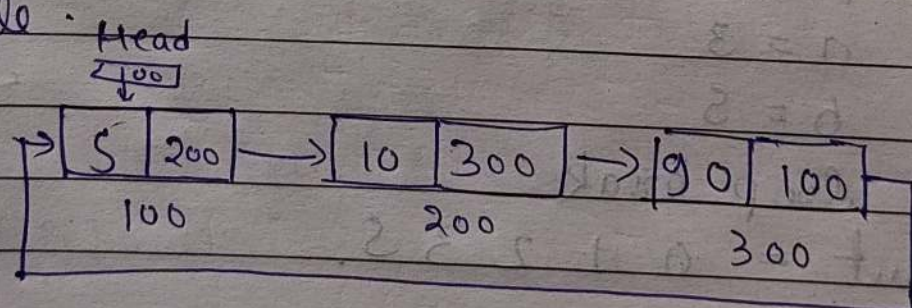 Head
100
5 200 10 300 90 100
100 200 300